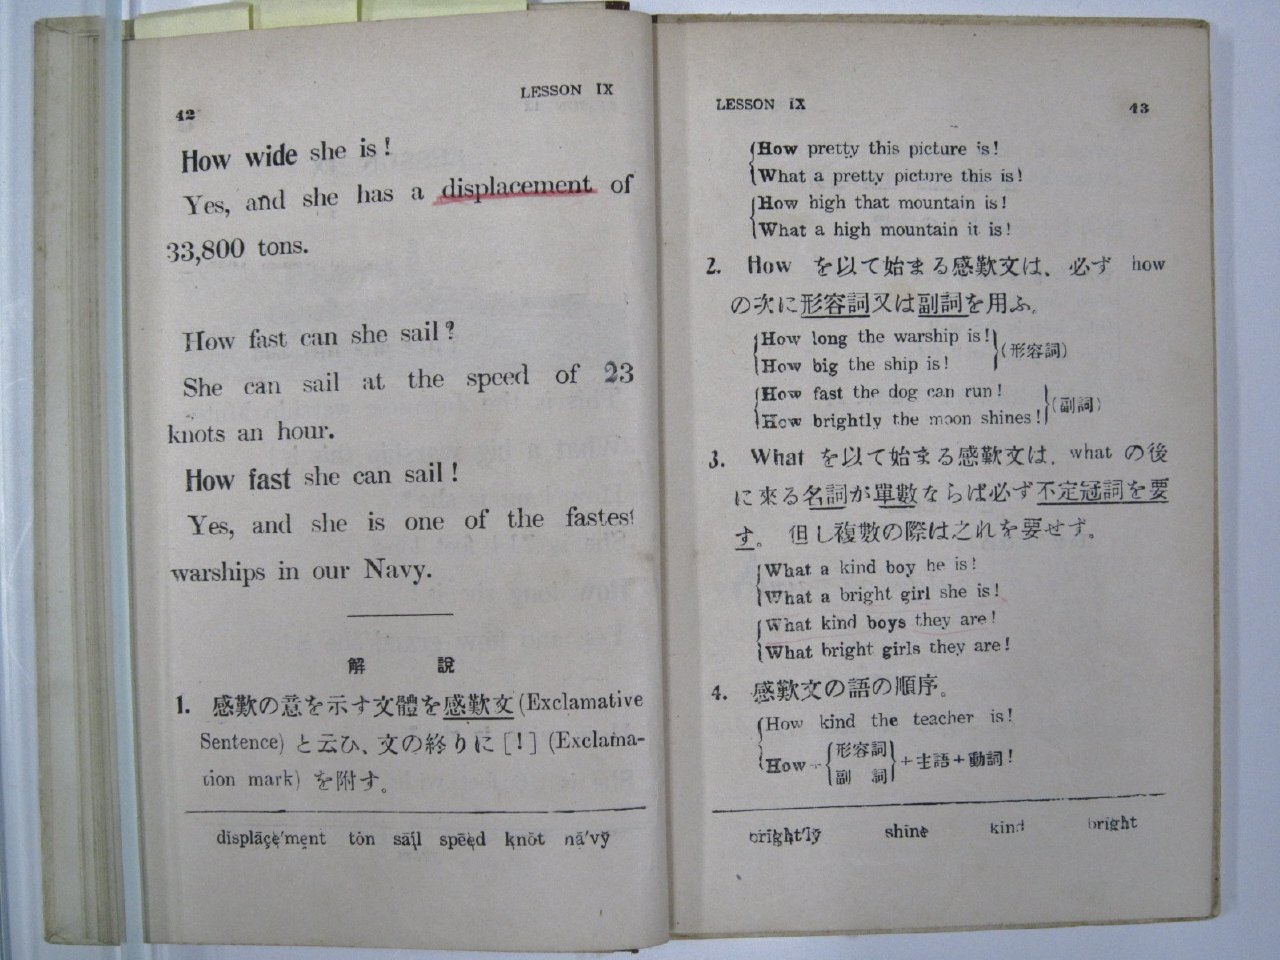 42
LESSON IX
How wide she is!
Yes, and she has a displacement of
33,800 tons.
How fast can she sail?
She can sail at the speed of 23
knots an hour.
How fast she can sail!
Yes, and she is one of the fastest
warships in our Navy.
解 說
1. 感歎の意を示す文體を感歎文 (Exclamative
Sentence) と云ひ、文の終りに [!] (Exclama-
tion mark) を附す。
displāçe′ment tȯn sāil spēed knŏt nā′vy̆
LESSON IX
43
How pretty this picture is!
What a pretty picture this is!
How high that mountain is!
What a high mountain it is!
2. How を以て始まる感歎文は、必ず how
の次に形容詞又は副詞を用ふ。
How long the warship is!
How big the ship is!
(形容詞)
How fast the dog can run!
How brightly the moon shines!
(副詞)
3. What を以て始まる感歎文は、what の後
に來る名詞が單數ならば必ず不定冠詞を要
す。 但し複數の際は之れを要せず。
What a kind boy he is!
What a bright girl she is!
What kind boys they are!
What bright girls they are!
4. 感歎文の語の順序。
How kind the teacher is!
How + {形容詞
副 詞} + 主語 + 動詞!
bright′ly̆ shine kind bright